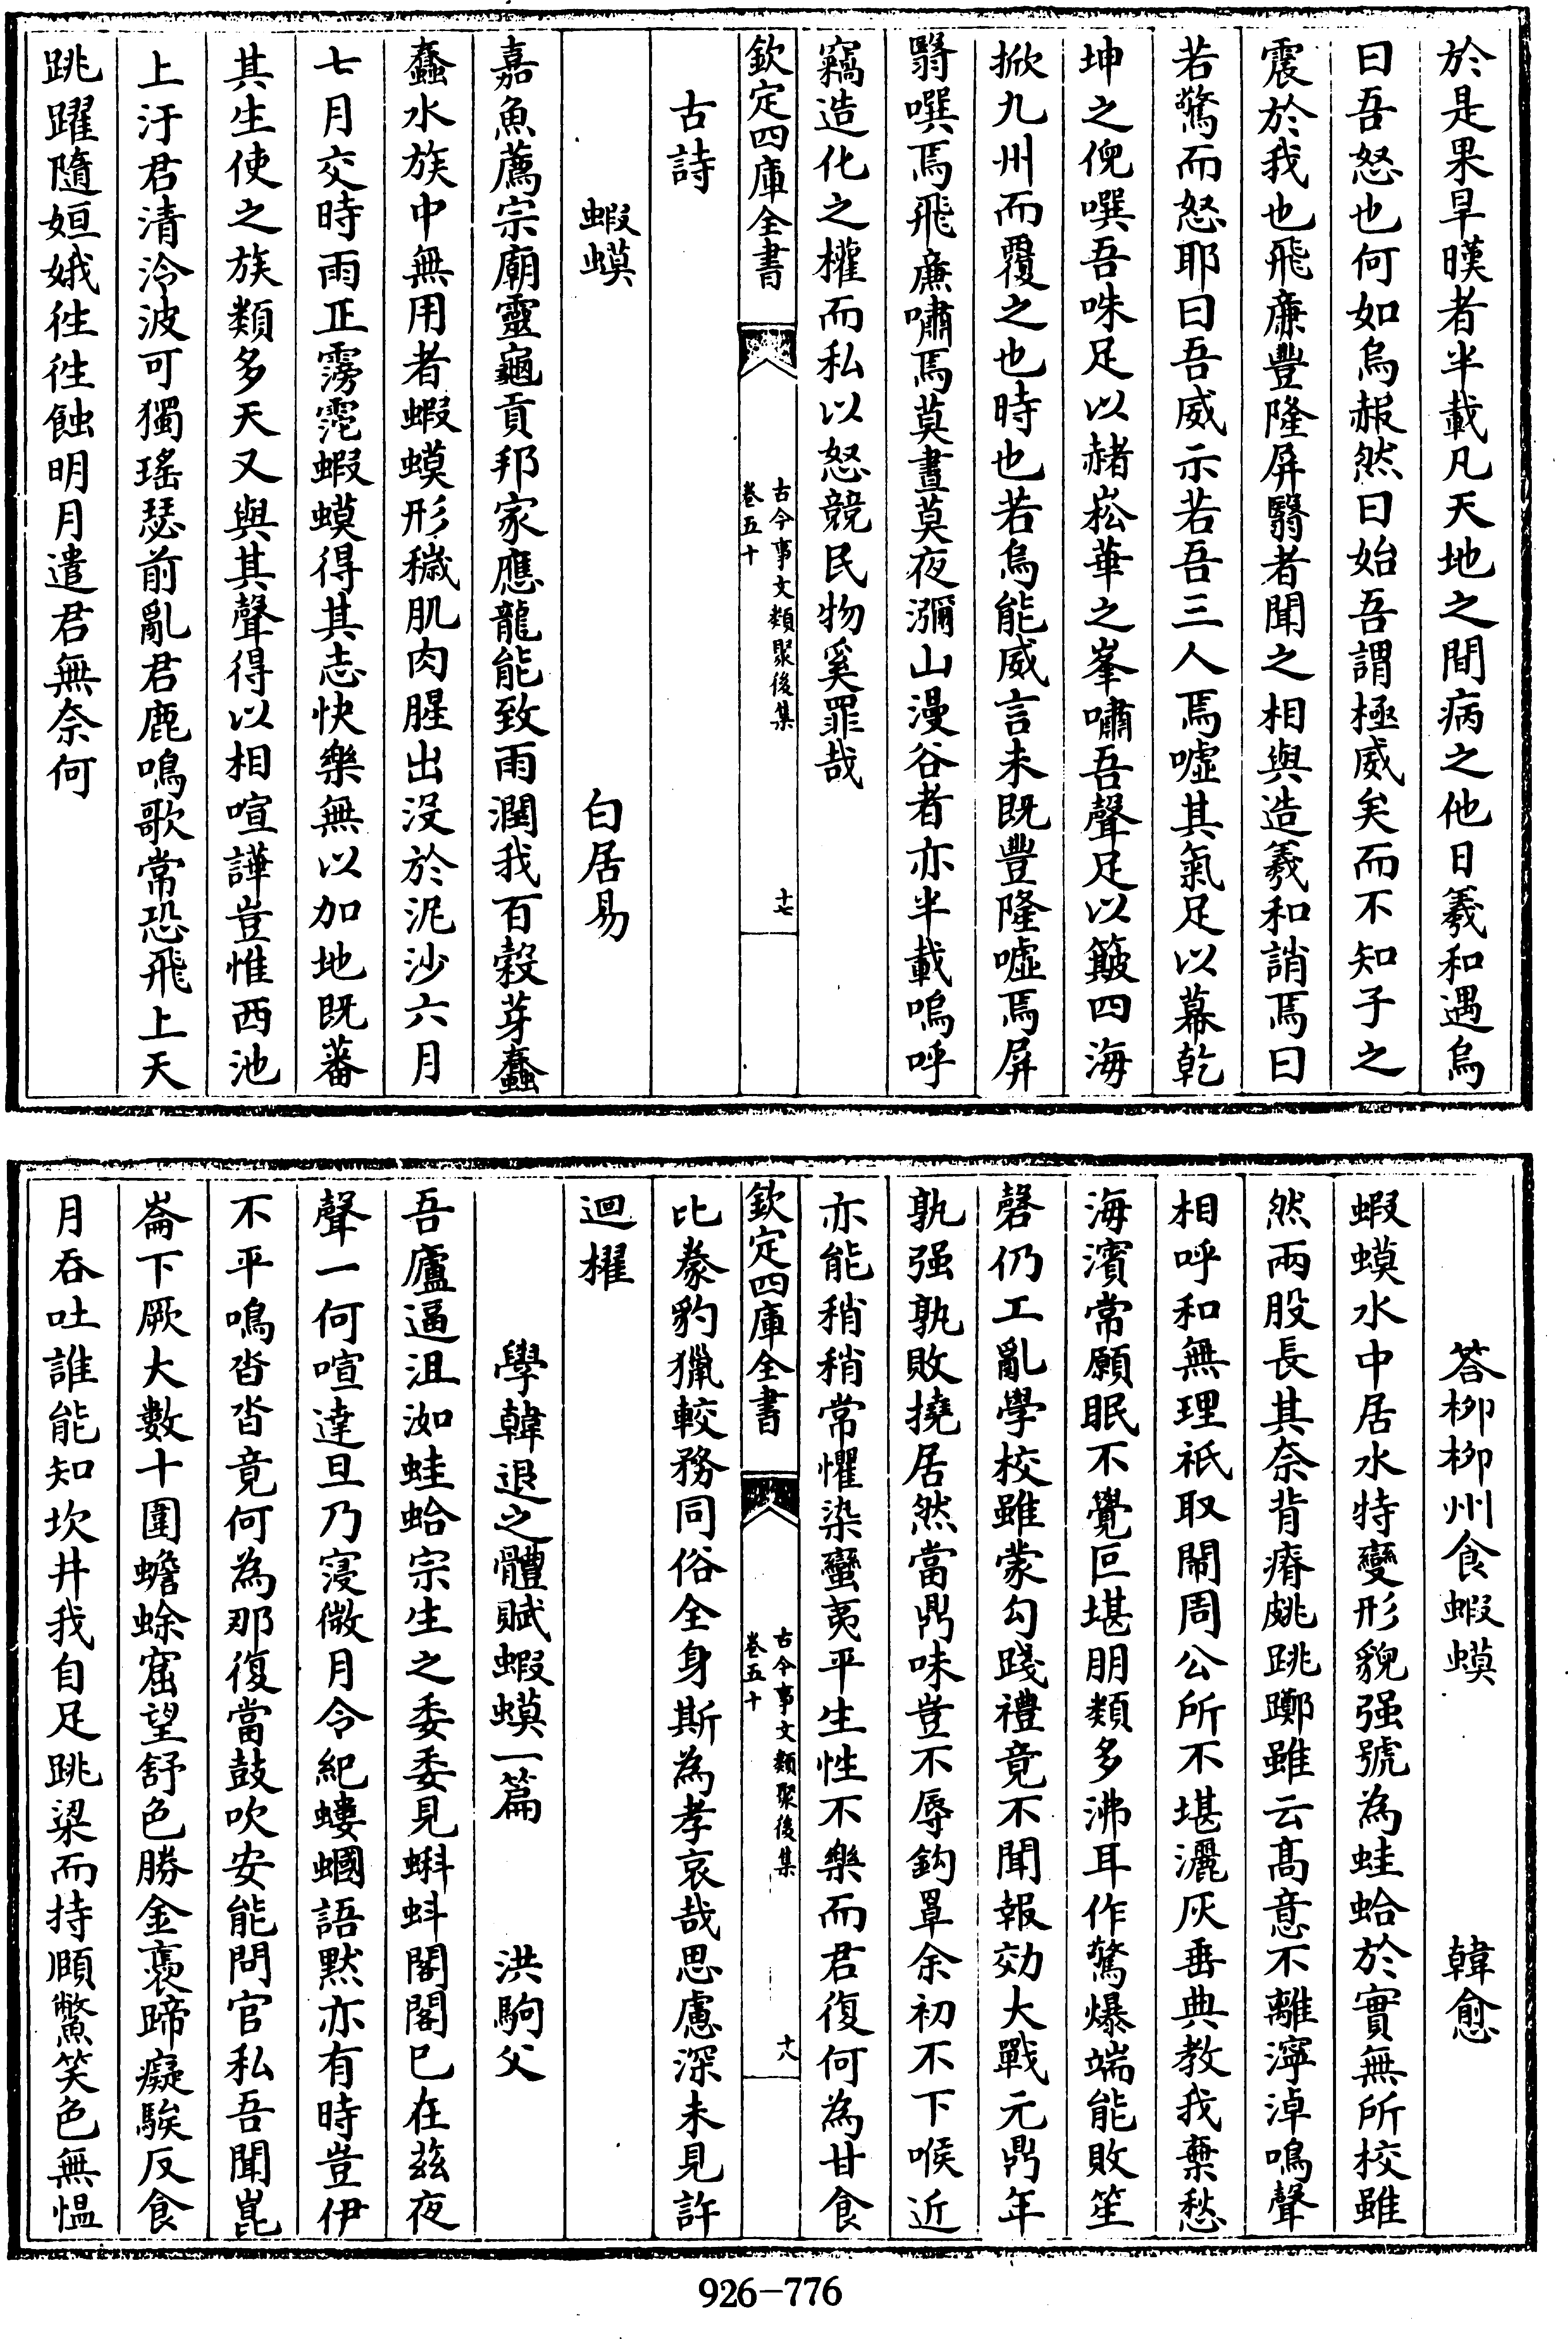 於是果旱暵者半載凡天地之間病之他日羲和遇烏
曰吾怒也何如烏赧然曰始吾謂極威矣而不知子之
震於我也飛廉豐隆屏翳者聞之相與造羲和誚焉曰
若驚而怒耶曰吾威示若吾三人焉噓其氣足以幕乾
坤之倪噀吾咮足以赭崧華之峯嘯吾聲足以簸四海
掀九州而覆之也時也若烏能威言未既豐隆噓焉屏
翳噀焉飛廉嘯焉莫晝莫夜瀰山漫谷者亦半載嗚呼
竊造化之權而私以怒競民物奚罪哉
欽定四庫全書
古今事文類聚後集
卷五十
十七
古詩
蝦蟆 白居易
嘉魚薦宗廟靈龜貢邦家應龍能致雨潤我百穀芽蠢
蠢水族中無用者蝦蟆形穢肌肉腥出没於泥沙六月
七月交時雨正霶霑蝦蟆得其志快樂無以加地既蕃
其生使之族類多天又與其聲得以相喧譁豈惟西池
上汙君清泠波可獨瑤瑟前亂君鹿鳴歌常恐飛上天
跳躍隨姮娥往往蝕明月遣君無奈何
答柳柳州食蝦蟆 韓愈
蝦蟆水中居水特變形貌强號為蛙蛤於實無所校雖
然兩股長其奈背瘠皴跳躑雖云髙意不離濘淖鳴聲
相呼和無理祇取閙周公所不堪灑灰垂典教我棄愁
海濱常願眠不覺叵堪朋類多沸耳作驚爆端能敗笙
磬仍工亂學校雖蒙勾踐禮竟不聞報効大戰元鼎年
孰强孰敗撓居然當鼎味豈不辱鈎罩余初不下喉近
亦能稍稍常懼染蠻夷平生性不樂而君復何為甘食
欽定四庫全書
古今事文類聚後集
卷五十
十八
比豢豹獵較務同俗全身斯為孝哀哉思慮深未見許
迴櫂
學韓退之體賦蝦蟆一篇 洪駒父
吾廬逼沮洳蛙蛤宗生之委委見蝌蚪閣閣已在兹夜
聲一何喧達旦乃寖微月令紀螻蟈語黙亦有時豈伊
不平鳴沓沓竟何為那復當鼓吹安能問官私吾聞崑
崙下厥大數十圍蟾蜍窟望舒色勝金褭蹄癡騃反食
月吞吐誰能知坎井我自足跳梁而持頤鱉笑色無愠
926-776